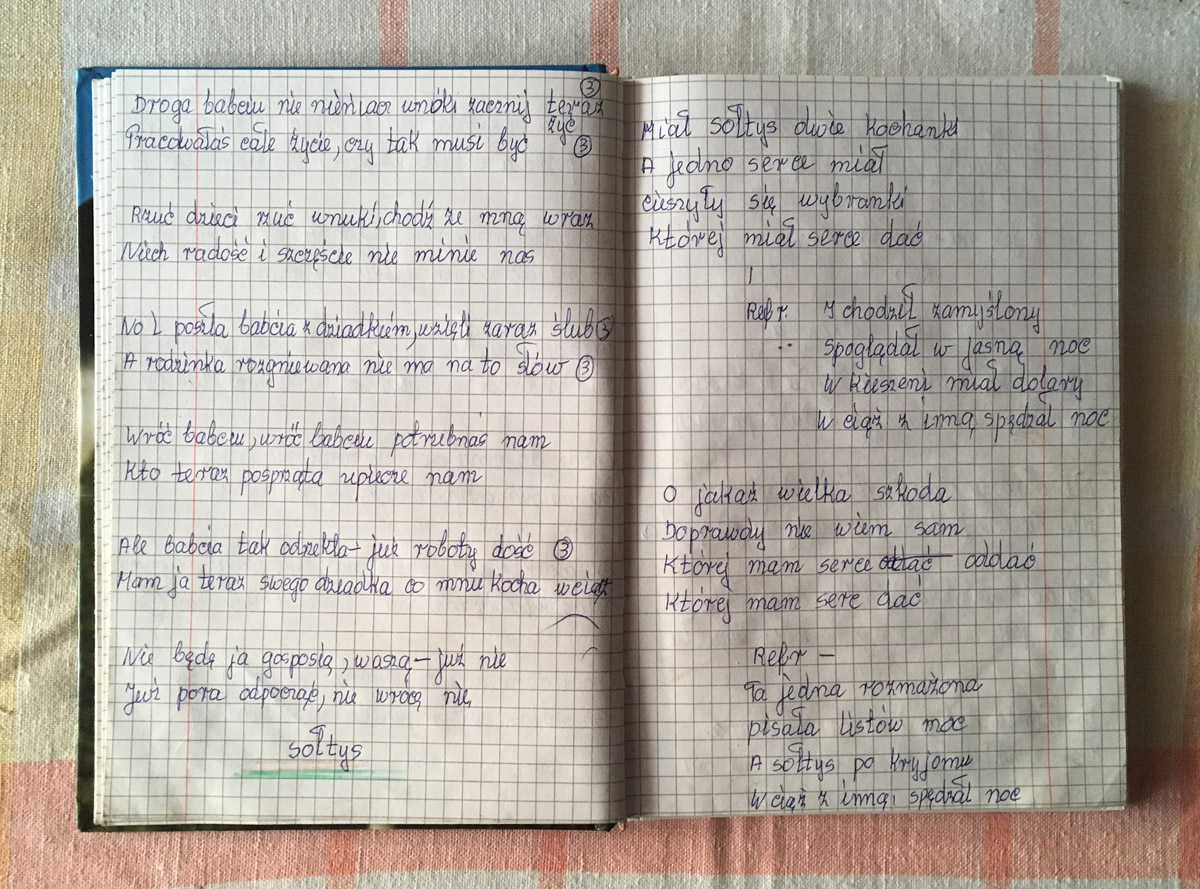 Droga babciu nie nieńlacz wnóki zacznij teraz ③
żyć
Pracowałaś całe życie, czy tak musi być ③
Rzuć dzieci rzuć wnuki, chodź ze mną wraz
Niech radość i szczęście nie minie nas
No i poszła babcia z dziadkiem, wzięli zaraz ślub ③
A rodzinka rozgniewana nie ma na to słów ③
Wróć babciu, wróć babciu potrzebnaś nam
Kto teraz posprząta upiecze nam
Ale babcia tak odrzekła – już roboty dość ③
Mam ja teraz swego dziadka co mnie kocha wciąż
Nie będę ja gosposią, waszą – już nie
Już pora odpocząć, nie wrócę nie,
sołtys
Miał sołtys dwie kochanki
A jedno serce miał
cieszyły się wybranki
Której miał serce dać
Refr. I chodził zamyślony
spoglądał w jasną noc
W kieszeni miał dolary
W ciąż z inną, spędzał noc
O jakaż wielka szkoda
Doprawdy nie wiem sam
Której mam serce oddać
Której mam serc dać
Refr –
Ta jedna rozmażona
pisała listów moc
A sołtys po kryjomu
W ciąż z inną, spędzał noc